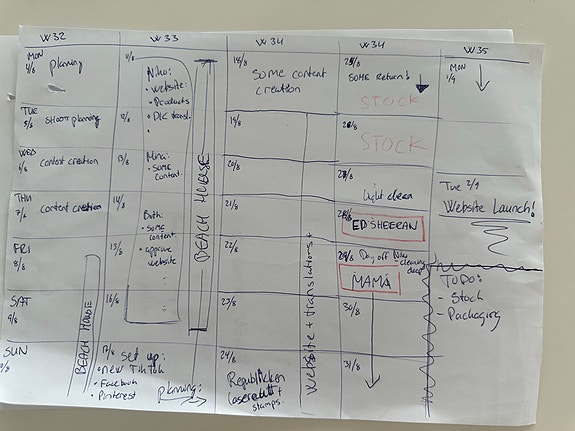 W32
W33
W34
W34
W35
MON
4/8
planning
TUE
5/8
SHOOT planning
WED
6/8
content creation
THU
7/8
content creation
FRI
8/8
SAT
9/8
SUN
BEACH HOUSE
11/8
12/8
13/8
14/8
15/8
16/8
17/8
Niko:
• website:
• Products
•
Mina:
• SOME
content.
Both:
• some
content
• approve
website
BEACH HOUSE
set up:
• new TikTok
• Facebook
• Pinterest
planning:
18/8
Some content
creation
19/8
20/8
21/8
22/8
23/8
24/8
stamps.
Website + translations +
25/8
SOME Return!
STOCK
STOCK
27/8
light clean
28/8
ED SHEERAN
29/8 Day off Niko
- cleaning
MAMÁ
30/8
31/8
MON
1/9
Tue 2/9
Website Launch!
TODO:
- Stock
- Packaging